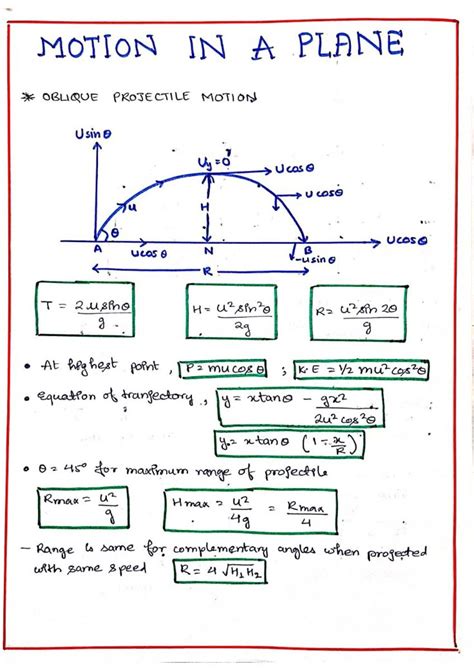 MOTION IN A PLANE
* OBLIQUE PROJECTILE MOTION
Usinθ
Uy=0
Ucosθ
Ucosθ
u
H
θ
A
ucosθ
N
B
Ucosθ
-usinθ
R
T = 2usinθ/g
H = u²sin²θ/2g
R = u²sin2θ/g
• At highest point, P = mucosθ ; K.E = 1/2 mu²cos²θ
• equation of tranjectory, y = xtanθ - gx²/2u²cos²θ
y = xtanθ (1 - x/R)
• θ = 45° for maximum range of projectile
Rmax = u²/g
Hmax = u²/4g = Rmax/4
- Range is same for complementary angles when projected
with same speed R = 4√H₁H₂